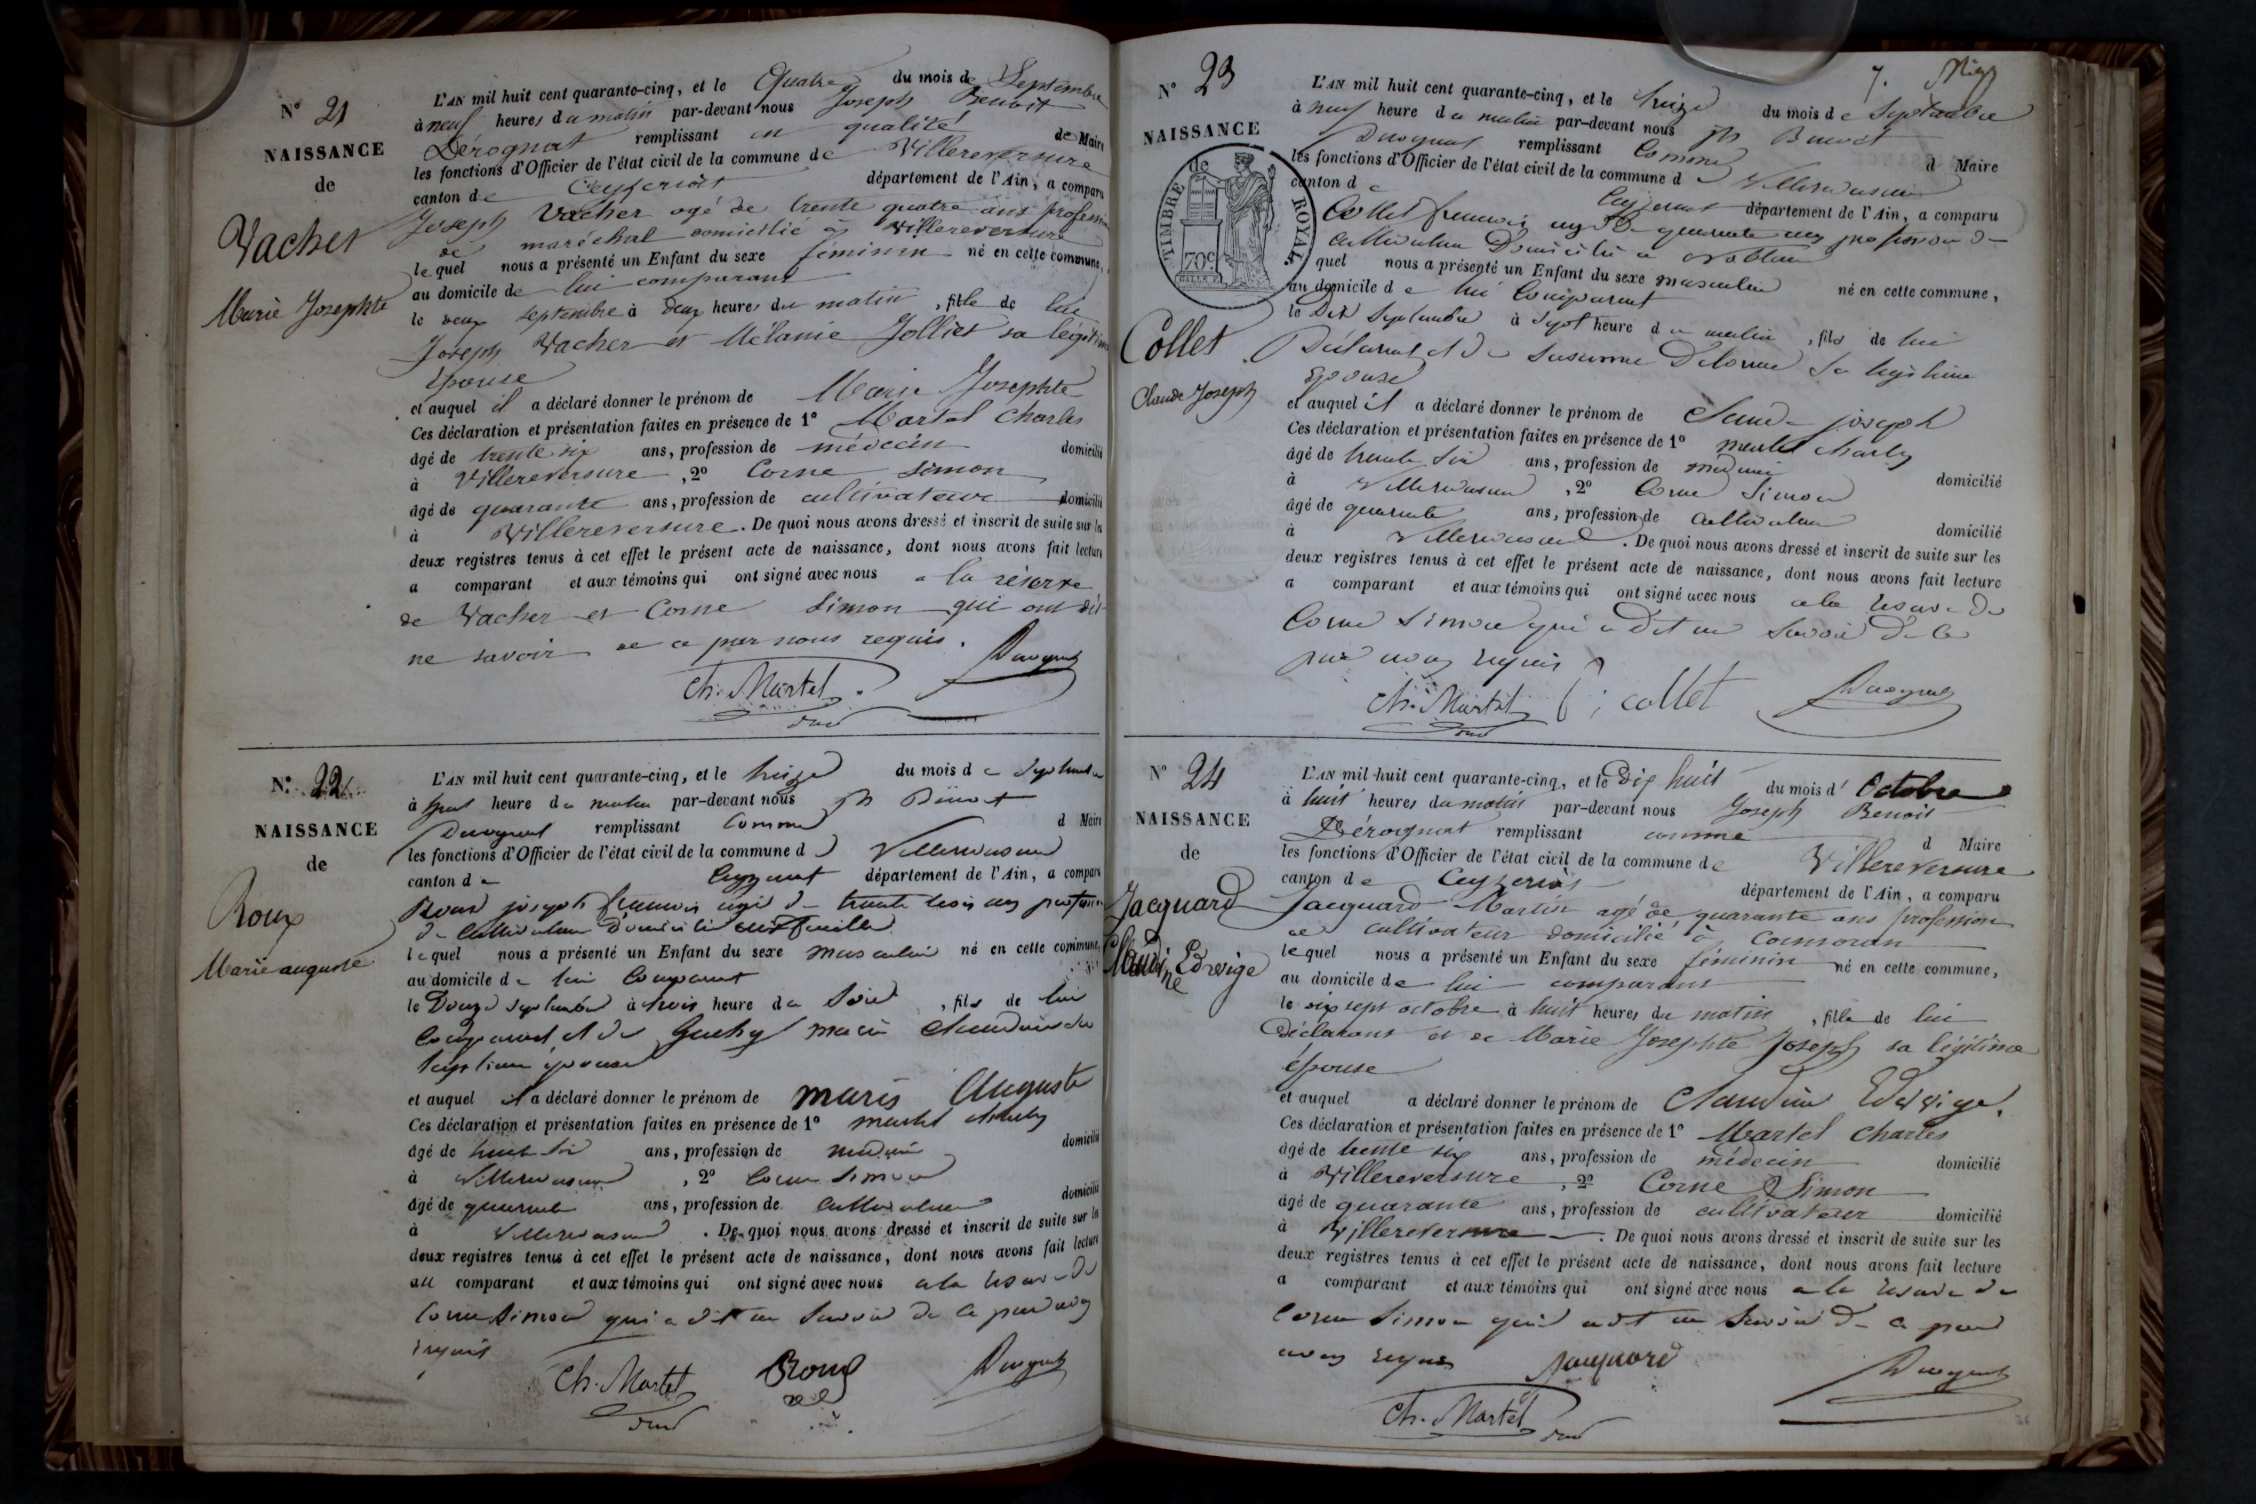 N° 21
NAISSANCE
de
Vacher
Marie Josephte
L'AN mil huit cent quarante-cinq, et le Quatre du mois de Septembre
à neuf heures du matin par-devant nous Joseph Benoit
Dérognat remplissant en qualité de Maire
les fonctions d'Officier de l'état civil de la commune de Villereversure
canton de Ceyzeriat département de l'Ain, a comparu
Joseph Vacher agé de trente quatre ans profession
de maréchal domicilié à Villereversure
lequel nous a présenté un Enfant du sexe féminin né en cette commune,
au domicile de lui comparant
le deux septembre à deux heures du matin, fille de lui
Joseph Vacher et Mélanie Jolliet sa légitime
épouse
et auquel il a déclaré donner le prénom de Marie Josephte
Ces déclaration et présentation faites en présence de 1° Martel Charles
âgé de trente six ans, profession de médecin domicilié
à Villereversure, 2° Corne Simon
âgé de quarante ans, profession de cultivateur domicilié
à Villereversure. De quoi nous avons dressé et inscrit de suite sur les
deux registres tenus à cet effet le présent acte de naissance, dont nous avons fait lecture
a comparant et aux témoins qui ont signé avec nous a la réserve
de Vacher et Corne Simon qui ont dit
ne savoir de ce par nous requis.
Ch. Martel
N° 22
NAISSANCE
de
Roux
Marie auguste
L'AN mil huit cent quarante-cinq, et le treize du mois de Septembre
à heure du matin par-devant nous Jh Benoit
Derognat remplissant comme d Maire
les fonctions d'Officier de l'état civil de la commune d Villereversure
canton de Ceyzeriat département de l'Ain, a comparu
Roux joseph francois agé de trente trois ans profession
de cultivateur Domicilié
lequel nous a présenté un Enfant du sexe masculin né en cette commune,
au domicile de lui Comparant
le Douze septembre à trois heure du Soir, fils de lui
Comparant et de Guchy marie Claudine sa
legitime épouse
et auquel il a déclaré donner le prénom de marie Auguste
Ces déclaration et présentation faites en présence de 1° martel charles
âgé de trente six ans, profession de médecin domicilié
à Villereversure, 2° Corne Simon
âgé de quarante ans, profession de cultivateur domicilié
à Villereversure. De quoi nous avons dressé et inscrit de suite sur les
deux registres tenus à cet effet le présent acte de naissance, dont nous avons fait lecture
au comparant et aux témoins qui ont signé avec nous a la reserve de
Corne Simon qui a dit ne savoir de ce par nous
requis
Ch. Martel Roux
7.
N° 23
NAISSANCE
de
TIMBRE ROYAL
70c
Collet
Claude Joseph
L'AN mil huit cent quarante-cinq, et le treize du mois de Septembre
à neuf heure du matin par-devant nous Jh Benoit
Derognat remplissant Comme d Maire
les fonctions d'Officier de l'état civil de la commune d Villereversure
canton de Ceyzeriat département de l'Ain, a comparu
Collet francois agé de quarante ans profession de
cultivateur Domicilié a
quel nous a présenté un Enfant du sexe masculin né en cette commune,
au domicile de lui Comparant
le Dix Septembre à Sept heure du matin, fils de lui
Déclarant et de Susanne Delorme Sa legitime
Epouse
et auquel il a déclaré donner le prénom de Claude joseph
Ces déclaration et présentation faites en présence de 1° martel charles
âgé de trente Six ans, profession de médecin domicilié
à Villereversure, 2° Corne Simon
âgé de quarante ans, profession de Cultivateur domicilié
à Villereversure. De quoi nous avons dressé et inscrit de suite sur les
deux registres tenus à cet effet le présent acte de naissance, dont nous avons fait lecture
a comparant et aux témoins qui ont signé avec nous a la reserve de
Corne Simon qui a dit ne Savoir de ce
par nous requis
Ch. Martel collet
N° 24
NAISSANCE
de
Jacquard
Claudine Edwige
L'AN mil huit cent quarante-cinq, et le Dix huit du mois d' Octobre
à huit heures du matin par-devant nous Joseph Benoit
Dérognat remplissant comme d Maire
les fonctions d'Officier de l'état civil de la commune de Villereversure
canton de Ceyzeriat département de l'Ain, a comparu
Jacquard Martin agé de quarante ans profession
de cultivateur domicilié à Cormoran
lequel nous a présenté un Enfant du sexe féminin né en cette commune,
au domicile de lui comparant
le dix sept octobre à huit heures du matin, fille de lui
Déclarant et de Marie Josephte Joseph sa légitime
épouse
et auquel a déclaré donner le prénom de Claudine Edwige.
Ces déclaration et présentation faites en présence de 1° Martel Charles
âgé de trente six ans, profession de médecin domicilié
à Villereversure, 2° Corne Simon
âgé de quarante ans, profession de cultivateur domicilié
à Villereversure. De quoi nous avons dressé et inscrit de suite sur les
deux registres tenus à cet effet le présent acte de naissance, dont nous avons fait lecture
a comparant et aux témoins qui ont signé avec nous a la reserve de
Corne Simon qui a dit ne Savoir de ce par
nous requis Jacquard
Ch. Martel